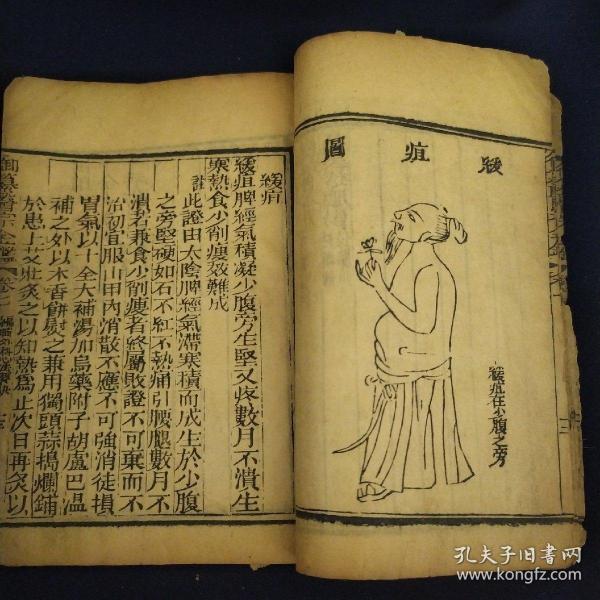 緩疽圖
緩疽在少腹之旁
緩疽
緩疽脾經氣積凝少腹旁生堅又疼數月不潰生
寒熱食少削瘦效難成
註此證由太陰脾經氣滯寒積而成生於少腹
之旁堅硬如石不紅不熱痛引腰腿數月不
潰者兼食少削瘦者終屬敗證不可棄而不
治初宜服山甲內消散不應不可強消徒損
胃氣以十全大補湯加烏藥附子胡盧巴溫
補之外以木香餅熨之兼用獨頭蒜搗爛鋪
於患上艾壯灸之以知熱為止次日再灸以
御纂醫宗金鑑
孔夫子旧书网
www.kongfz.com